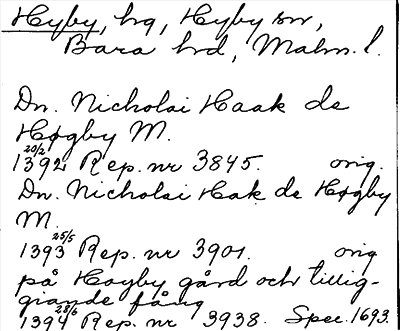 Hyby, hg, Hyby sn,
Bara hd, Malm. l.
Dn. Nicholai Haak de
Høgby M.
20/2
1392 Rep. nr 3845. orig.
Dn. Nicholai Hak de Høgby
M.
25/5
1393 Rep. nr 3901. orig
på Høyby gård och tillig-
giande fång
28/6
1394 Rep. nr 3938. Spec. 1693.